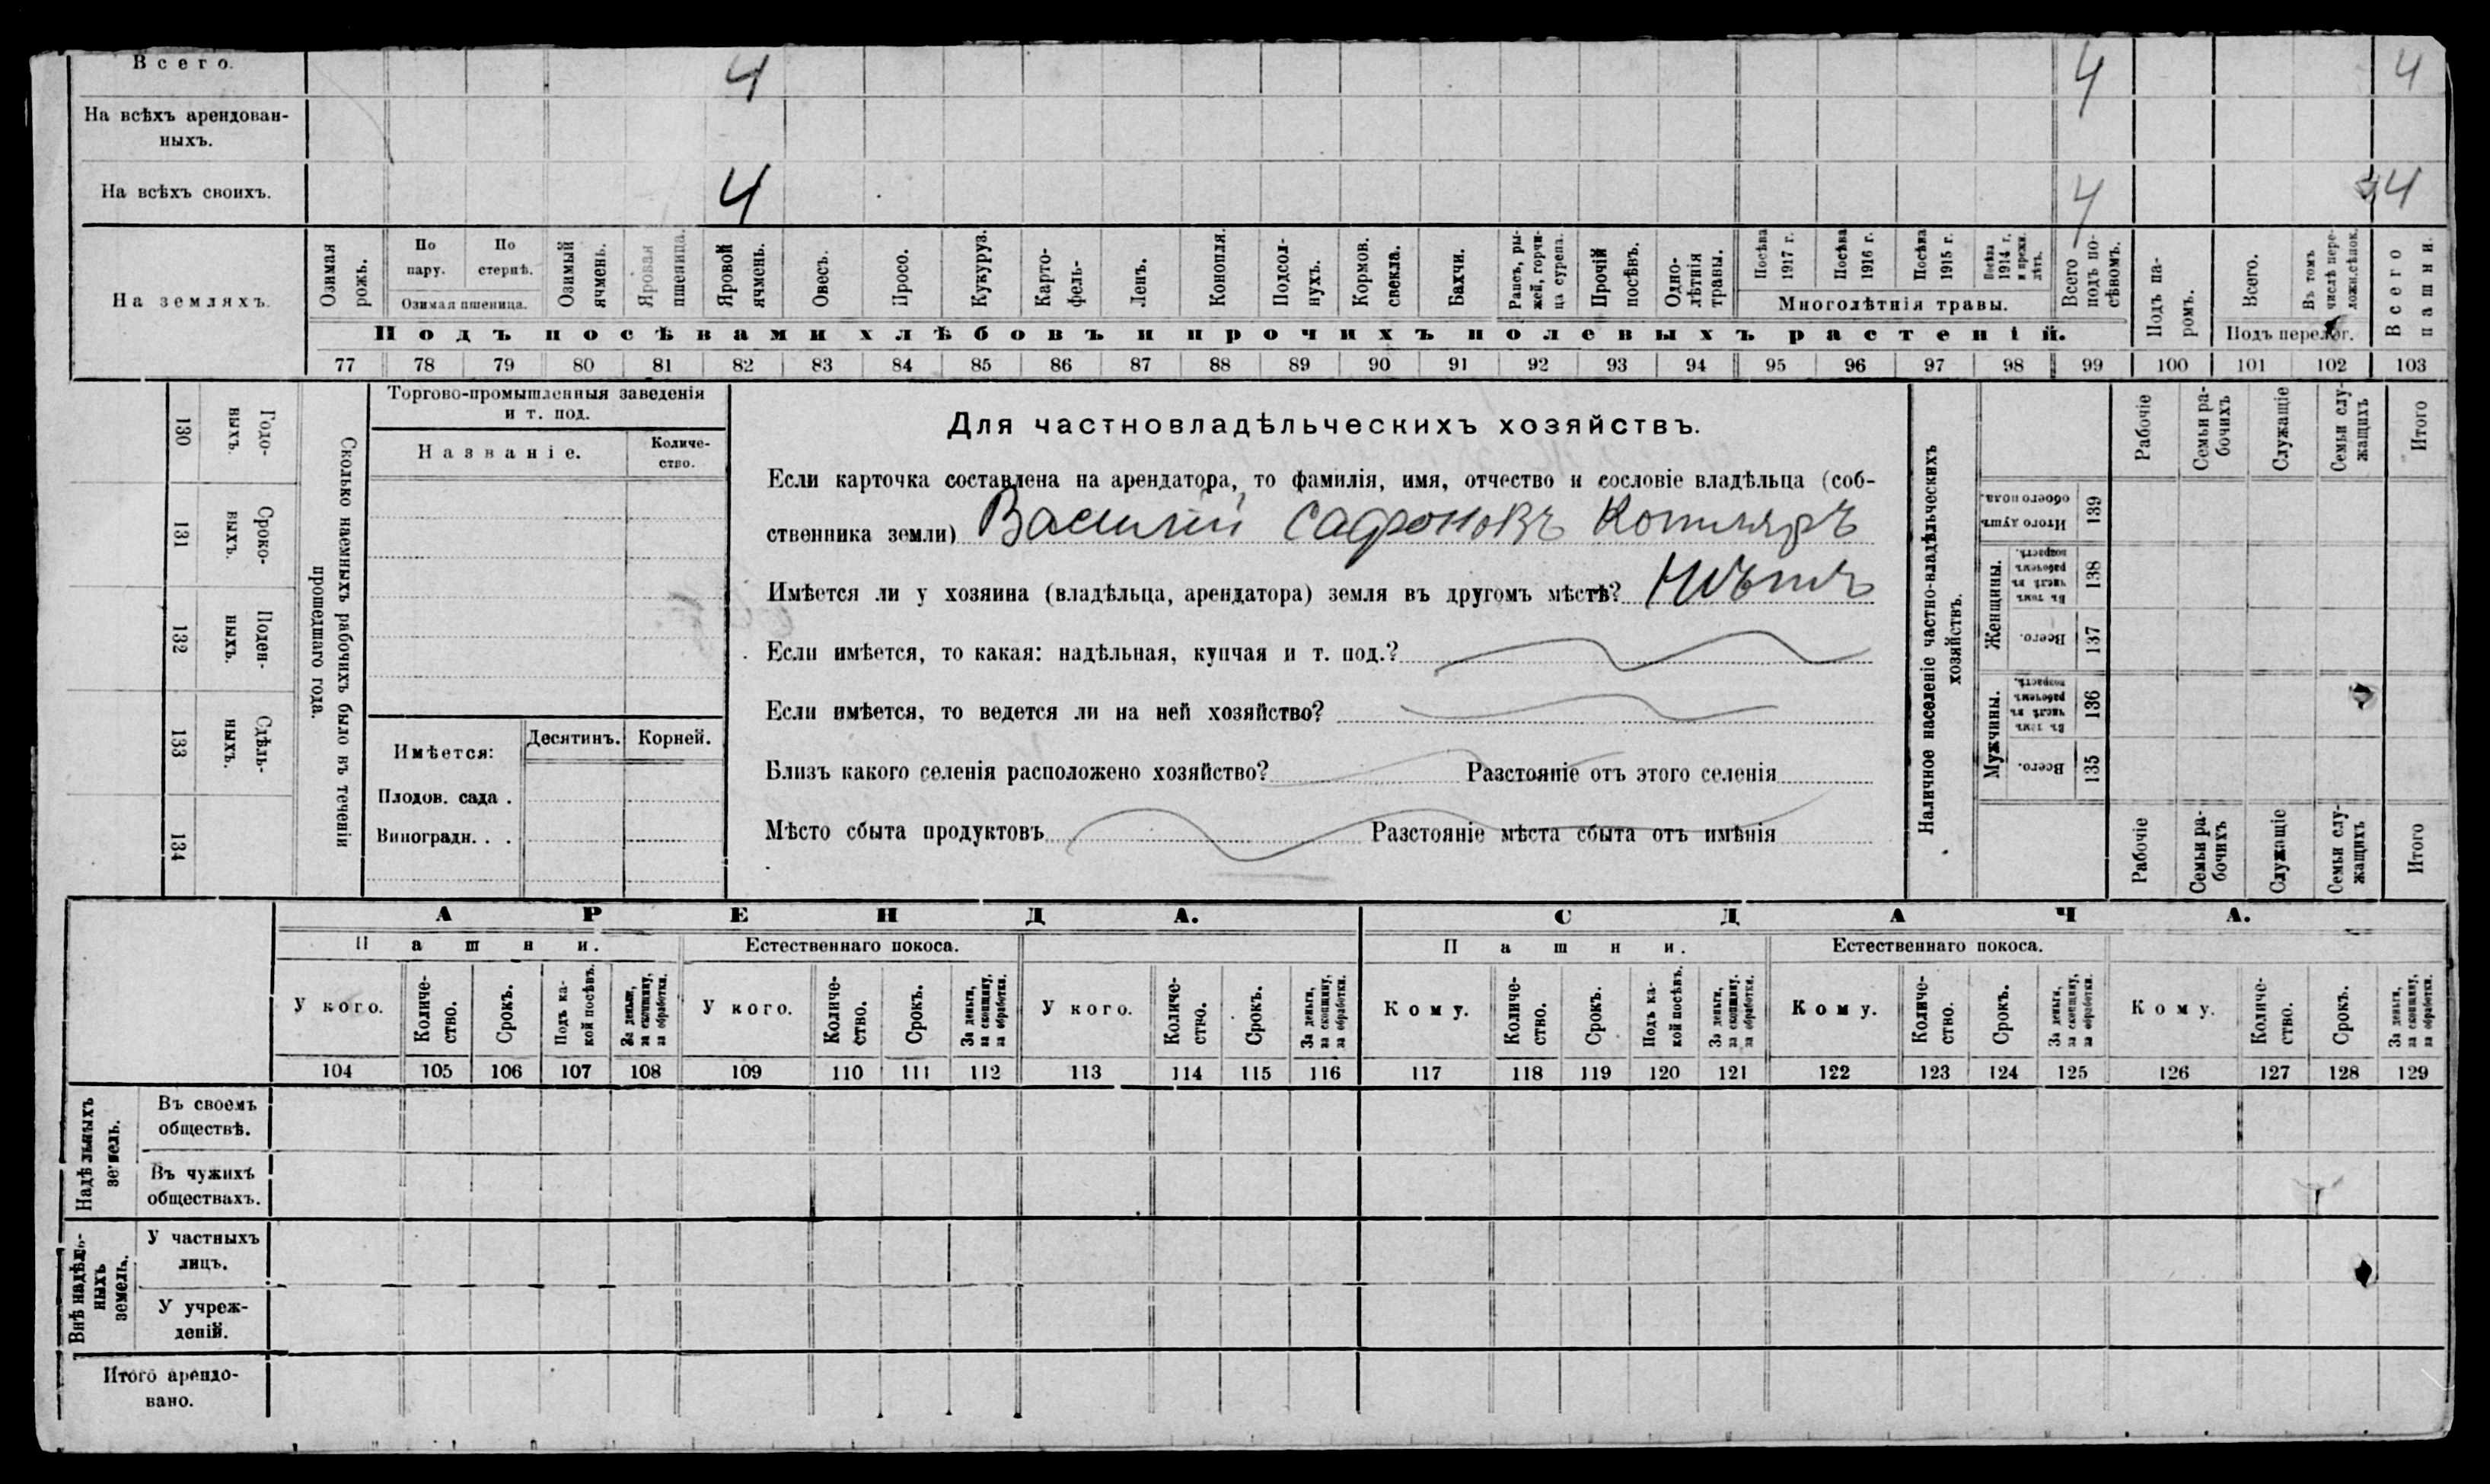 Всего. 4 4 4
На всѣхъ арендован-
ныхъ.
На всѣхъ своихъ. 4 4 4
На земляхъ.
Озимая рожь.
По пару.
По стернѣ.
Озимая пшеница.
Озимый ячмень.
Яровая пшеница.
Яровой ячмень.
Овесъ.
Просо.
Кукуруз.
Карто-
фель-
Ленъ.
Конопля.
Подсол-
нухъ.
Кормов.
свекла.
Бахчи.
Рапсъ, ры-
жей, горчи-
ца сурепа.
Прочій
посѣвъ.
Одно-
лѣтнія
травы.
Посѣва
1917 г.
Посѣва
1916 г.
Посѣва
1915 г.
Посѣва
1914 г.
и прежн.
лѣтъ.
Многолѣтнія травы.
Всего
подъ по-
сѣвомъ.
Подъ па-
ромъ.
Всего.
Въ томъ
числѣ пере-
ложн.сѣнок.
Подъ перелог.
Всего
пашни.
Подъ посѣвами хлѣбовъ и прочихъ полевыхъ растеній.
77 78 79 80 81 82 83 84 85 86 87 88 89 90 91 92 93 94 95 96 97 98 99 100 101 102 103
130 Годо-
выхъ.
131 Сроко-
выхъ.
132 Поден-
ныхъ.
133 Сдѣль-
ныхъ.
134
Сколько наемныхъ рабочихъ было въ теченіи
прошедшаго года.
Торгово-промышленныя заведенія
и т. под.
Названіе.
Количе-
ство.
Имѣется:
Десятинъ. Корней.
Плодов. сада .
Виноградн. . .
Для частновладѣльческихъ хозяйствъ.
Если карточка составлена на арендатора, то фамилія, имя, отчество и сословіе владѣльца (соб-
ственника земли) Василій Сафоновъ Котляръ
Имѣется ли у хозяина (владѣльца, арендатора) земля въ другомъ мѣстѣ? Нѣтъ
Если имѣется, то какая: надѣльная, купчая и т. под.?
Если имѣется, то ведется ли на ней хозяйство?
Близъ какого селенія расположено хозяйство? Разстояніе отъ этого селенія
Мѣсто сбыта продуктовъ Разстояніе мѣста сбыта отъ имѣнія
Наличное населеніе частно-владѣльческихъ
хозяйствъ.
Рабочіе
Семьи ра-
бочихъ
Служащіе
Семьи слу-
жащихъ
Итого
Итого душъ
обоего пола.
139
Женщины.
Въ томъ
числѣ въ
рабочемъ
возрастѣ.
138
Всего.
137
Мужчины.
Въ томъ
числѣ въ
рабочемъ
возрастѣ.
136
Всего.
135
Рабочіе
Семьи ра-
бочихъ
Служащіе
Семьи слу-
жащихъ
Итого
АРЕНДА. СДАЧА.
Пашни. Естественнаго покоса. Пашни. Естественнаго покоса.
У кого.
Количе-
ство.
Срокъ.
Подъ ка-
кой посѣвъ.
За деньги,
за скопщину,
за обработки.
У кого.
Количе-
ство.
Срокъ.
За деньги,
за скопщину,
за обработки.
У кого.
Количе-
ство.
Срокъ.
За деньги,
за скопщину,
за обработки.
Кому.
Количе-
ство.
Срокъ.
Подъ ка-
кой посѣвъ.
За деньги,
за скопщину,
за обработки.
Кому.
Количе-
ство.
Срокъ.
За деньги,
за скопщину,
за обработки.
Кому.
Количе-
ство.
Срокъ.
За деньги,
за скопщину,
за обработки.
104 105 106 107 108 109 110 111 112 113 114 115 116 117 118 119 120 121 122 123 124 125 126 127 128 129
Надѣльныхъ
земель.
Въ своемъ
обществѣ.
Въ чужихъ
обществахъ.
Внѣ надѣль-
ныхъ
земель.
У частныхъ
лицъ.
У учреж-
деній.
Итого арендо-
вано.